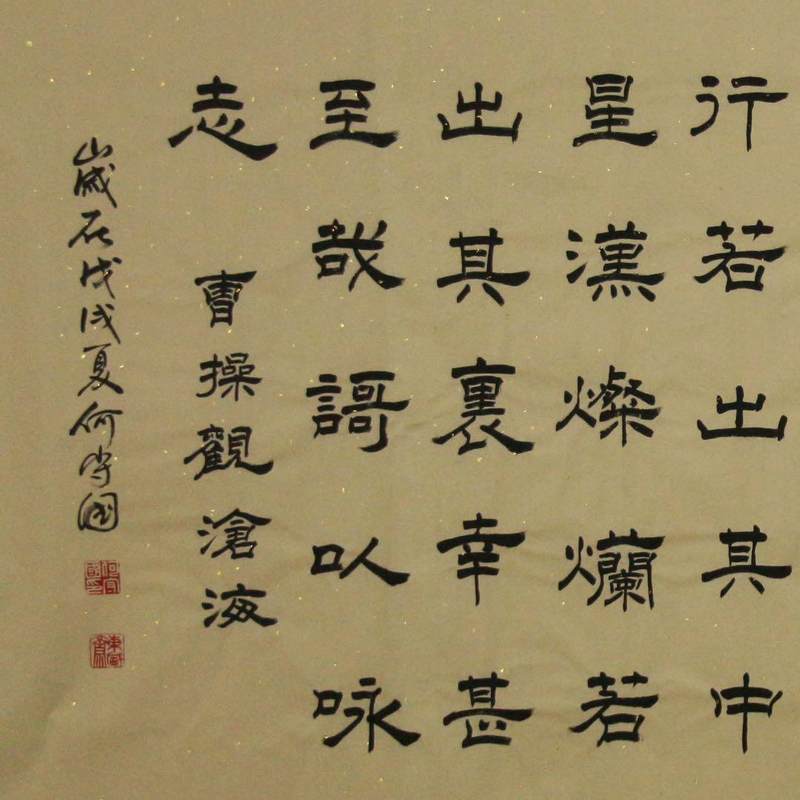 行若出其中
星漢燦爛若
出其裏幸甚
至哉謌以咏
志
曹操觀滄海
歲在戊戌夏何守國